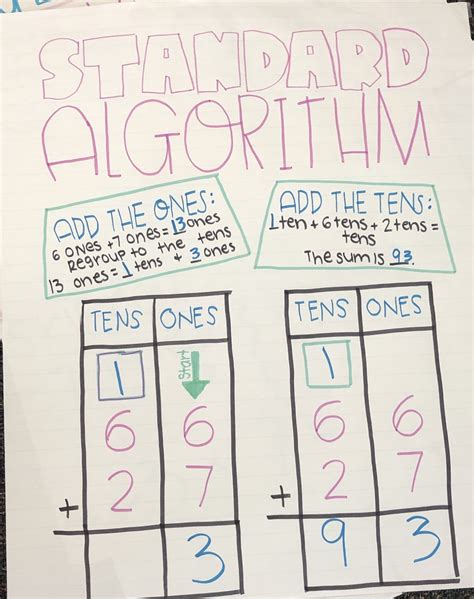 STANDARD
ALGORITHM
ADD THE ONES:
6 ones + 7 ones = 13 ones
Regroup to the tens
13 ones = 1 tens + 3 ones
ADD THE TENS:
1 ten + 6 tens + 2 tens =
tens
The sum is 93.
TENS ONES
1 Start
6 6
+ 2 7
3
TENS ONES
1
6 6
+ 2 7
9 3